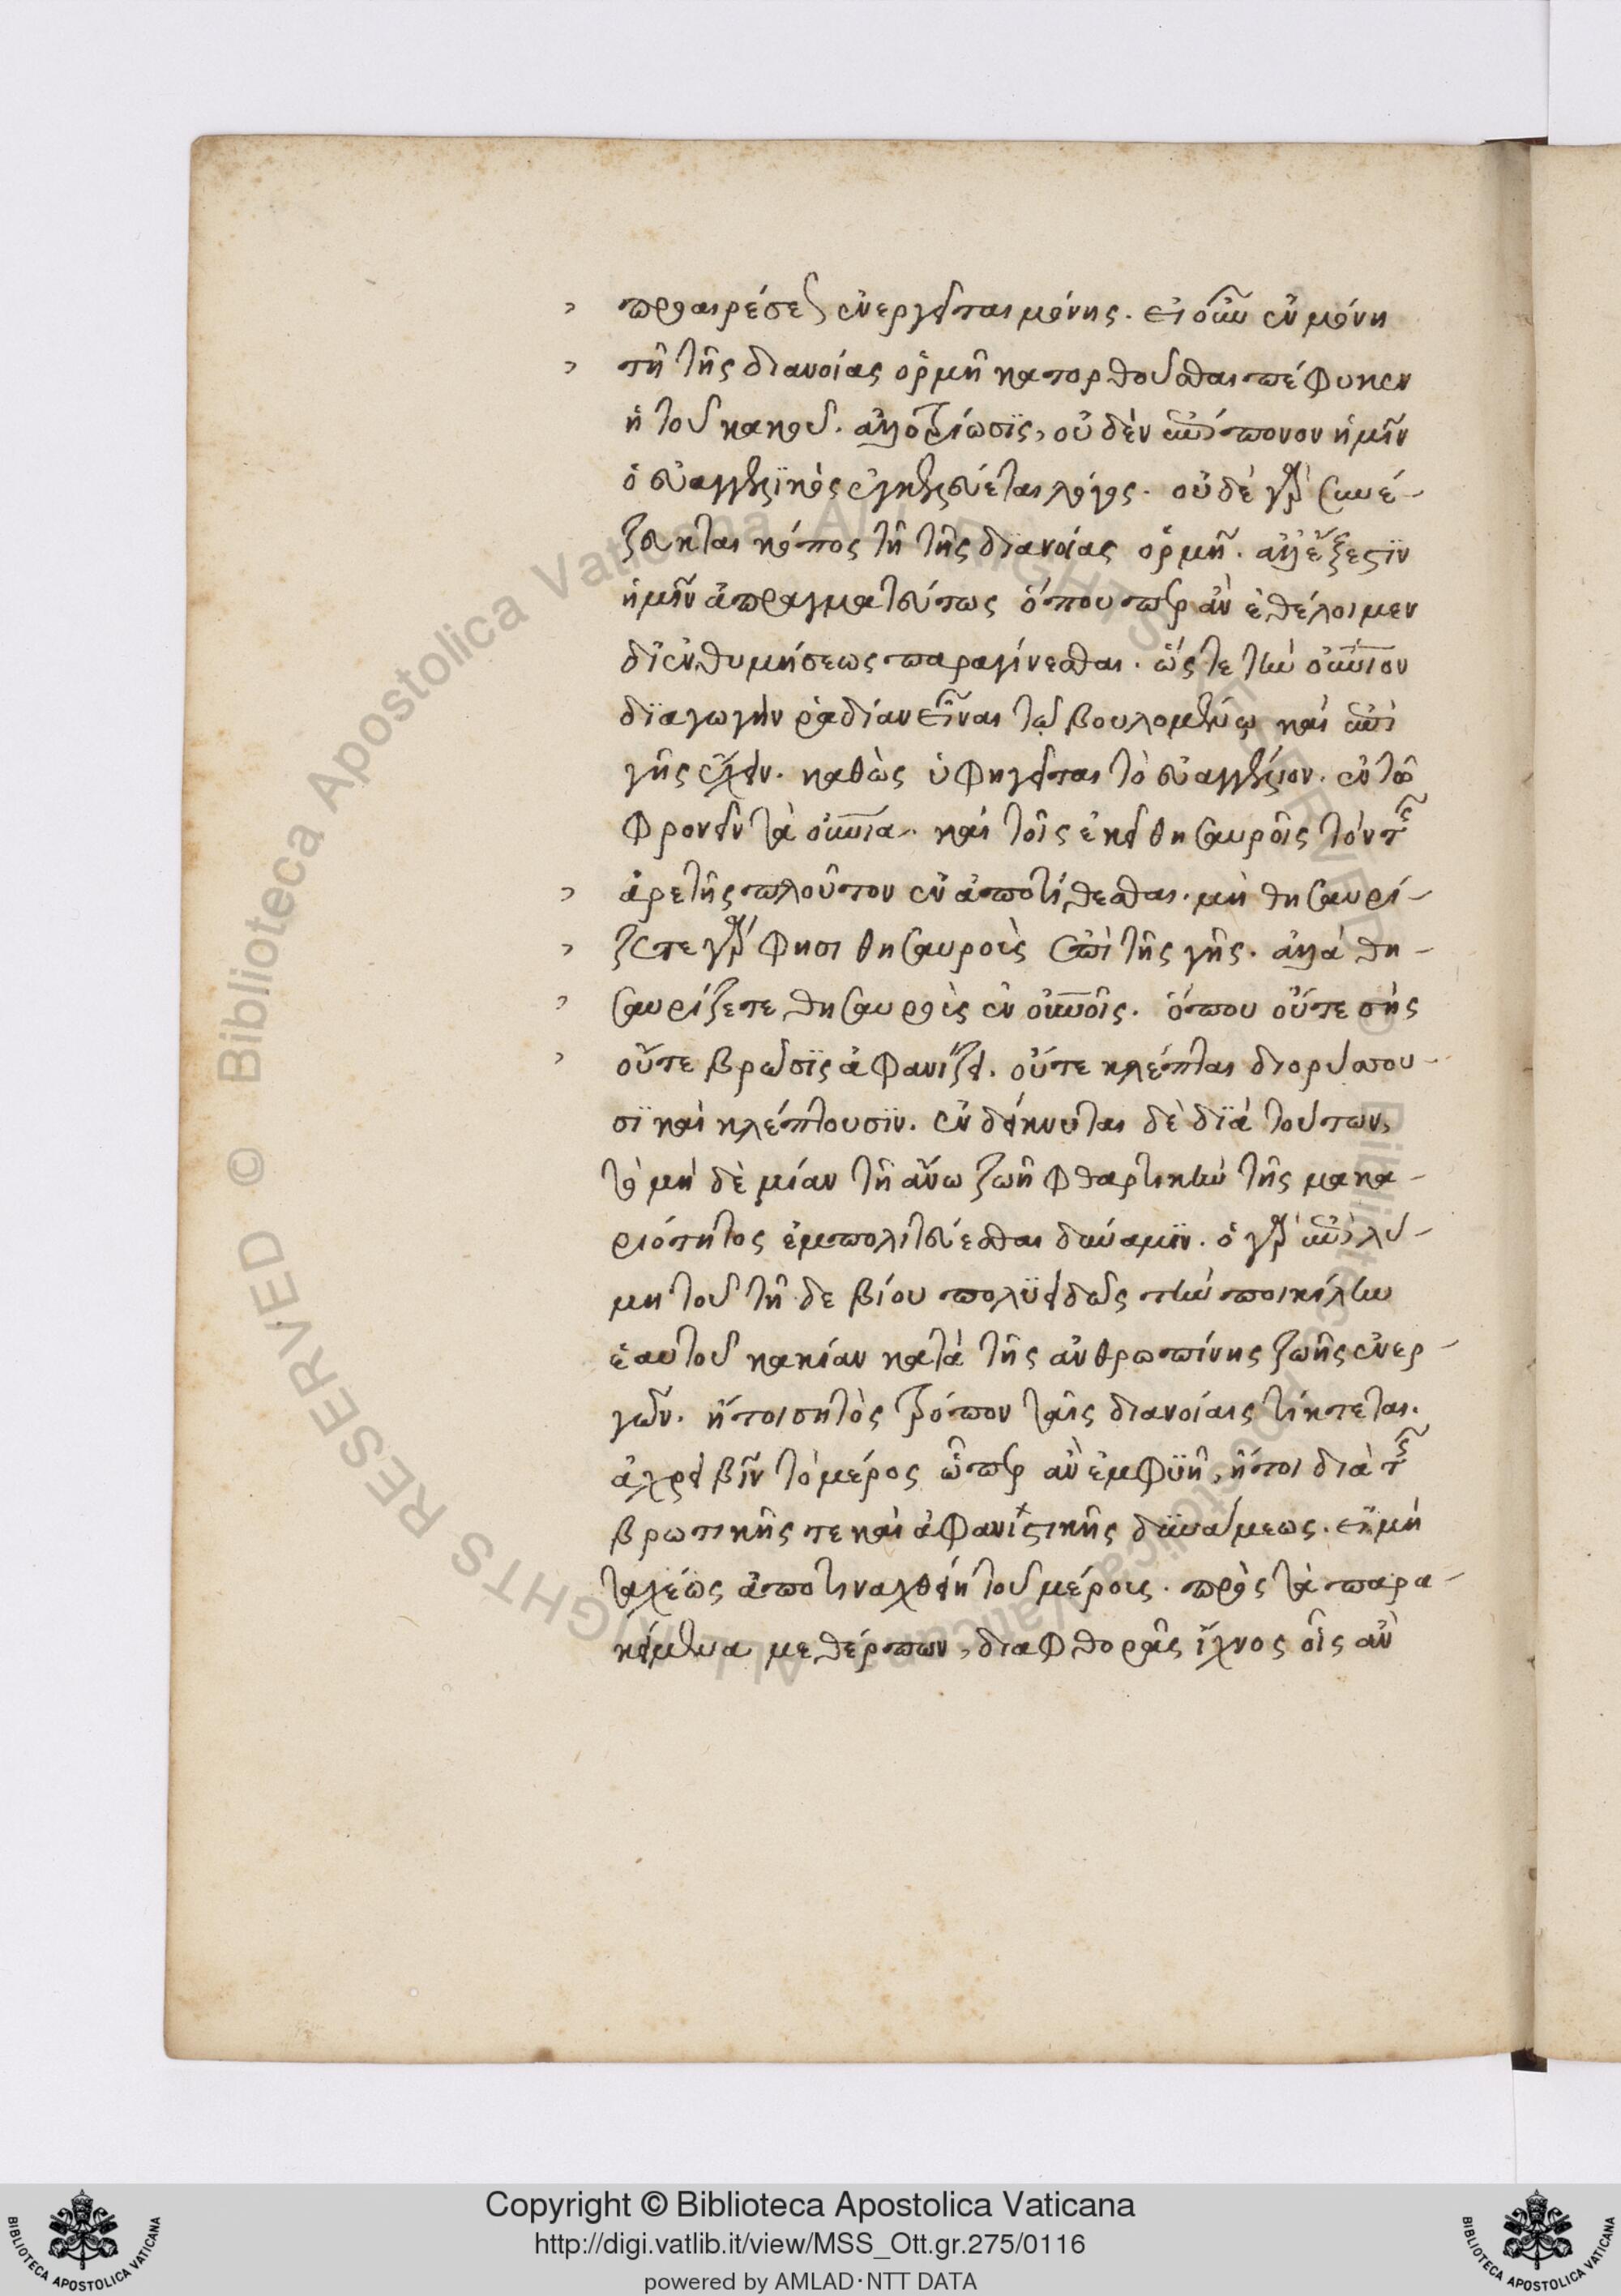 προαιρέσεως ἐνεργεῖται μόνης. εἰ οὖν ἐν μόνη
τῆ τῆς διανοίας ὁρμῆ κατορθοῦσθαι πέφυκεν
ἡ τοῦ κακοῦ. ἀλλοτρίωσϊς, οὐδὲν ἐπίπονον ἡμῖν
ὁ εὐαγγελϊκὸς ἐγκελεύεται λόγος. οὐδὲ γὰρ συνέ-
ζευκται κόπος τῆ τῆς δϊανοίας ὁρμῆ. ἀλλ' ἔξεστϊν
ἡμῖν ἀπραγματεύτως ὅπουπερ ἂν ἐθέλοιμεν
δι' ἐνθυμήσεως παραγίνεσθαι. ὥστε τὴν οὐνιον
δϊαγωγὴν ῥαδίαν εἶναι τῶ βουλομένω καὶ ἐπὶ
γῆς ἔχειν. καθὼς ὑφηγεῖται τὸ εὐαγγέλιον. ἐν τῶ
φρονεῖν τὰ οὐνια. καὶ τοῖς ἐκεῖ θησαυροῖς τὸν τῆς
ἀρετῆς πλοῦτον ἐναποτίθεσθαι. μὴ θησαυρί-
ζετε γάρ φησι θησαυροὺς ἐπὶ τῆς γῆς. ἀλλὰ θη-
σαυρίζετε θησαυροὺς ἐν οὐνοῖς. ὅπου οὔτε σὴς
οὔτε βρῶσϊς ἀφανίζει. οὔτε κλέπται διορύσσου-
σϊ καὶ κλέπτουσϊν. ἐνδείκνυται δὲ δϊὰ τούτων,
τὸ μὴ δὲ μίαν τῆ ἄνω ζωῆ φθαρτικὴν τῆς μακα-
ριότητος ἐμπολιτεύεσθαι δύναμϊν. ὁ γὰρ ἐπὶ λύ-
μη τοῦ τῆ δε βίου πολϋειδῶς τὴν ποικίλην
ἑαυτοῦ κακίαν κατὰ τῆς ἀνθρωπίνης ζωῆς ἐνερ-
γῶν. ἤτοι σητὸς τρόπον ταῖς διανοίαις τίκτεται.
ἀχρεῖ βῖν τὸ μέρος ὧπερ ἂν ἐμφϋῆ, ἤτοι διὰ τῆς
βρωτικῆς τε καὶ ἀφανιστικῆς δϋνάμεως. εἰ μὴ
ταχέως ἀποτιναχθείη τοῦ μέρους. πρὸς τὰ παρα-
κείμενα μεθέρπων, διαφθορᾶς ἴχνος οἷς ἂν
Copyright © Biblioteca Apostolica Vaticana
http://digi.vatlib.it/view/MSS_Ott.gr.275/0116
powered by AMLAD·NTT DATA